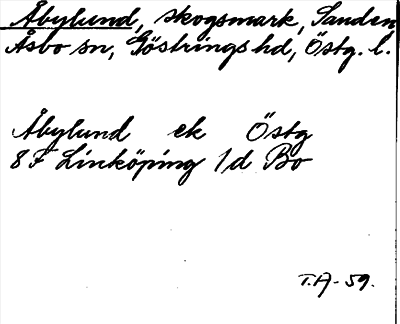 Åbylund, skogsmark, Sanden,
Åsbo sn, Göstrings hd, Östg. l.
Åbylund ek Östg
8F Linköping 1d Bo
T.A-59.